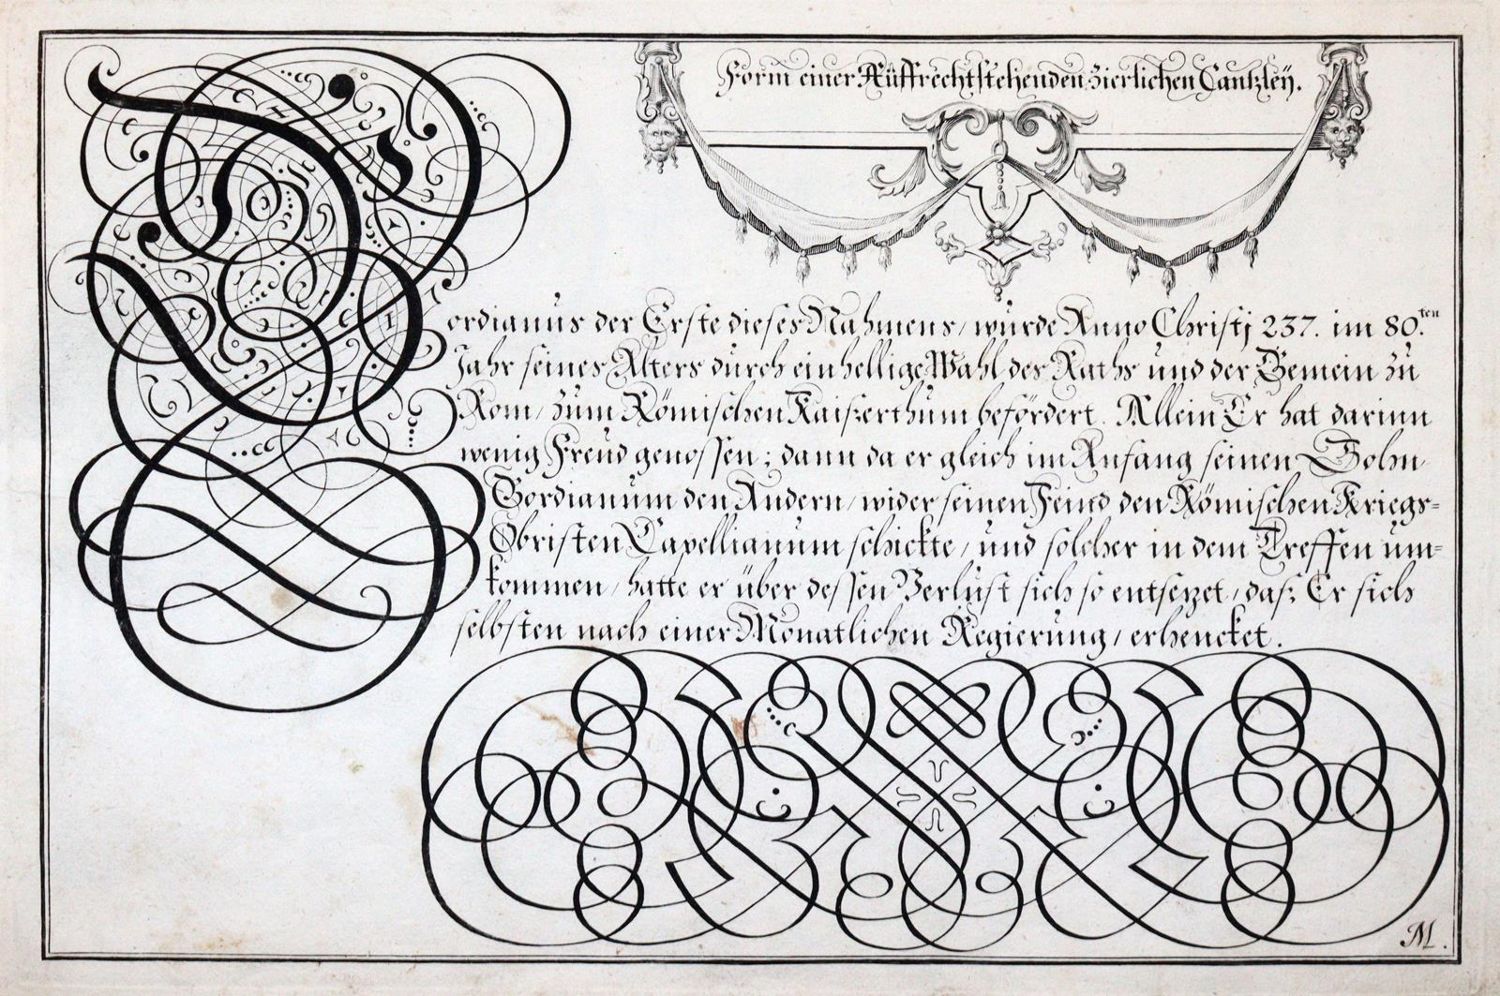 Form einer Auffrechtstehenden zierlichen Cantzleÿ.
Gordianus der Erste dieses Nahmens / wurde Anno Christj 237. im 80.ten
Jahr seines Alters durch einhellige Wahl des Raths und der Gemein zu
Rom / zum Römischen Kaiserthum befördert. Allein Er hat darinn
wenig Freud genossen ; dann da er gleich im Anfang seinen Sohn
Gordianum den Andern / wider seinen Feind den Römischen Kriegs=
Obristen Capellianum schickte / und solcher in dem Treffen um=
kommen / hatte er über dessen Verlust sich so entsetzet / daß Er sich
selbsten nach einer Monatlichen Regierung / erhencket.
M.